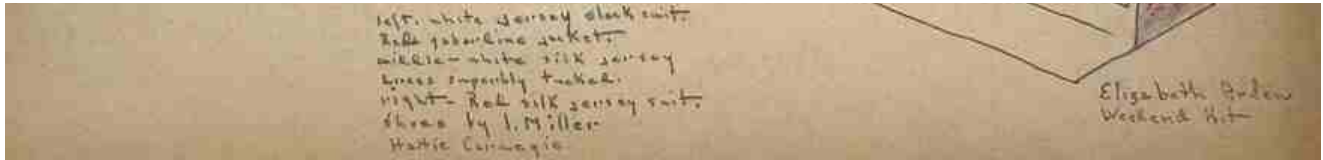 left. white jersey slack suit.
Red gabardine jacket.
middle - white silk jersey
dress superbly tucked.
right - Red silk jersey suit.
shoes by I. Miller
Hattie Carnegie
Elizabeth Arden
Weekend Kit